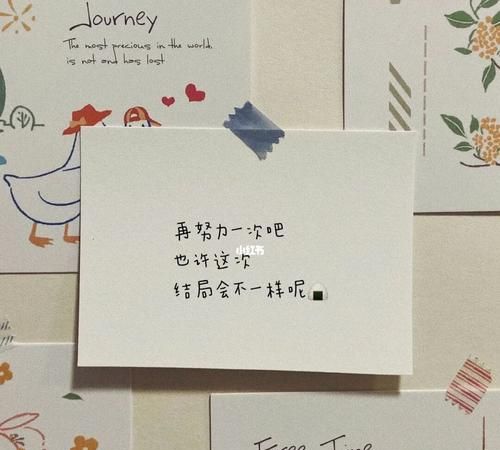 Journey
The most precious in the world,
is not and has lost
再努力一次吧
小红书
也许这次
结局会不一样呢🍙
Free Time